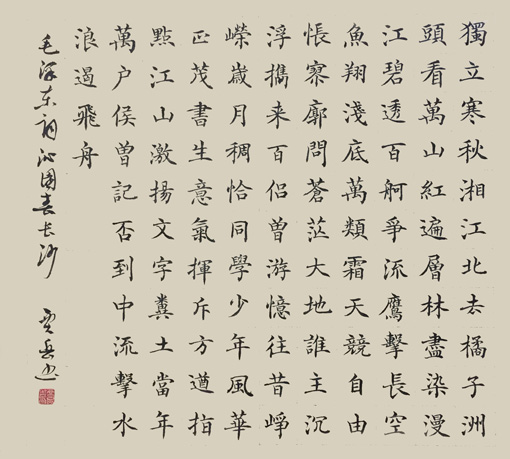 獨立寒秋湘江北去橘子洲
頭看萬山紅遍層林盡染漫
江碧透百舸爭流鷹擊長空
魚翔淺底萬類霜天競自由
悵寥廓問蒼茫大地誰主沉
浮攜来百侣曾游憶往昔崢
嶸歲月稠恰同學少年風華
正茂書生意氣揮斥方遒指
點江山激揚文字糞土當年
萬户侯曾記否到中流擊水
浪遏飛舟
毛泽东詞沁園春长沙